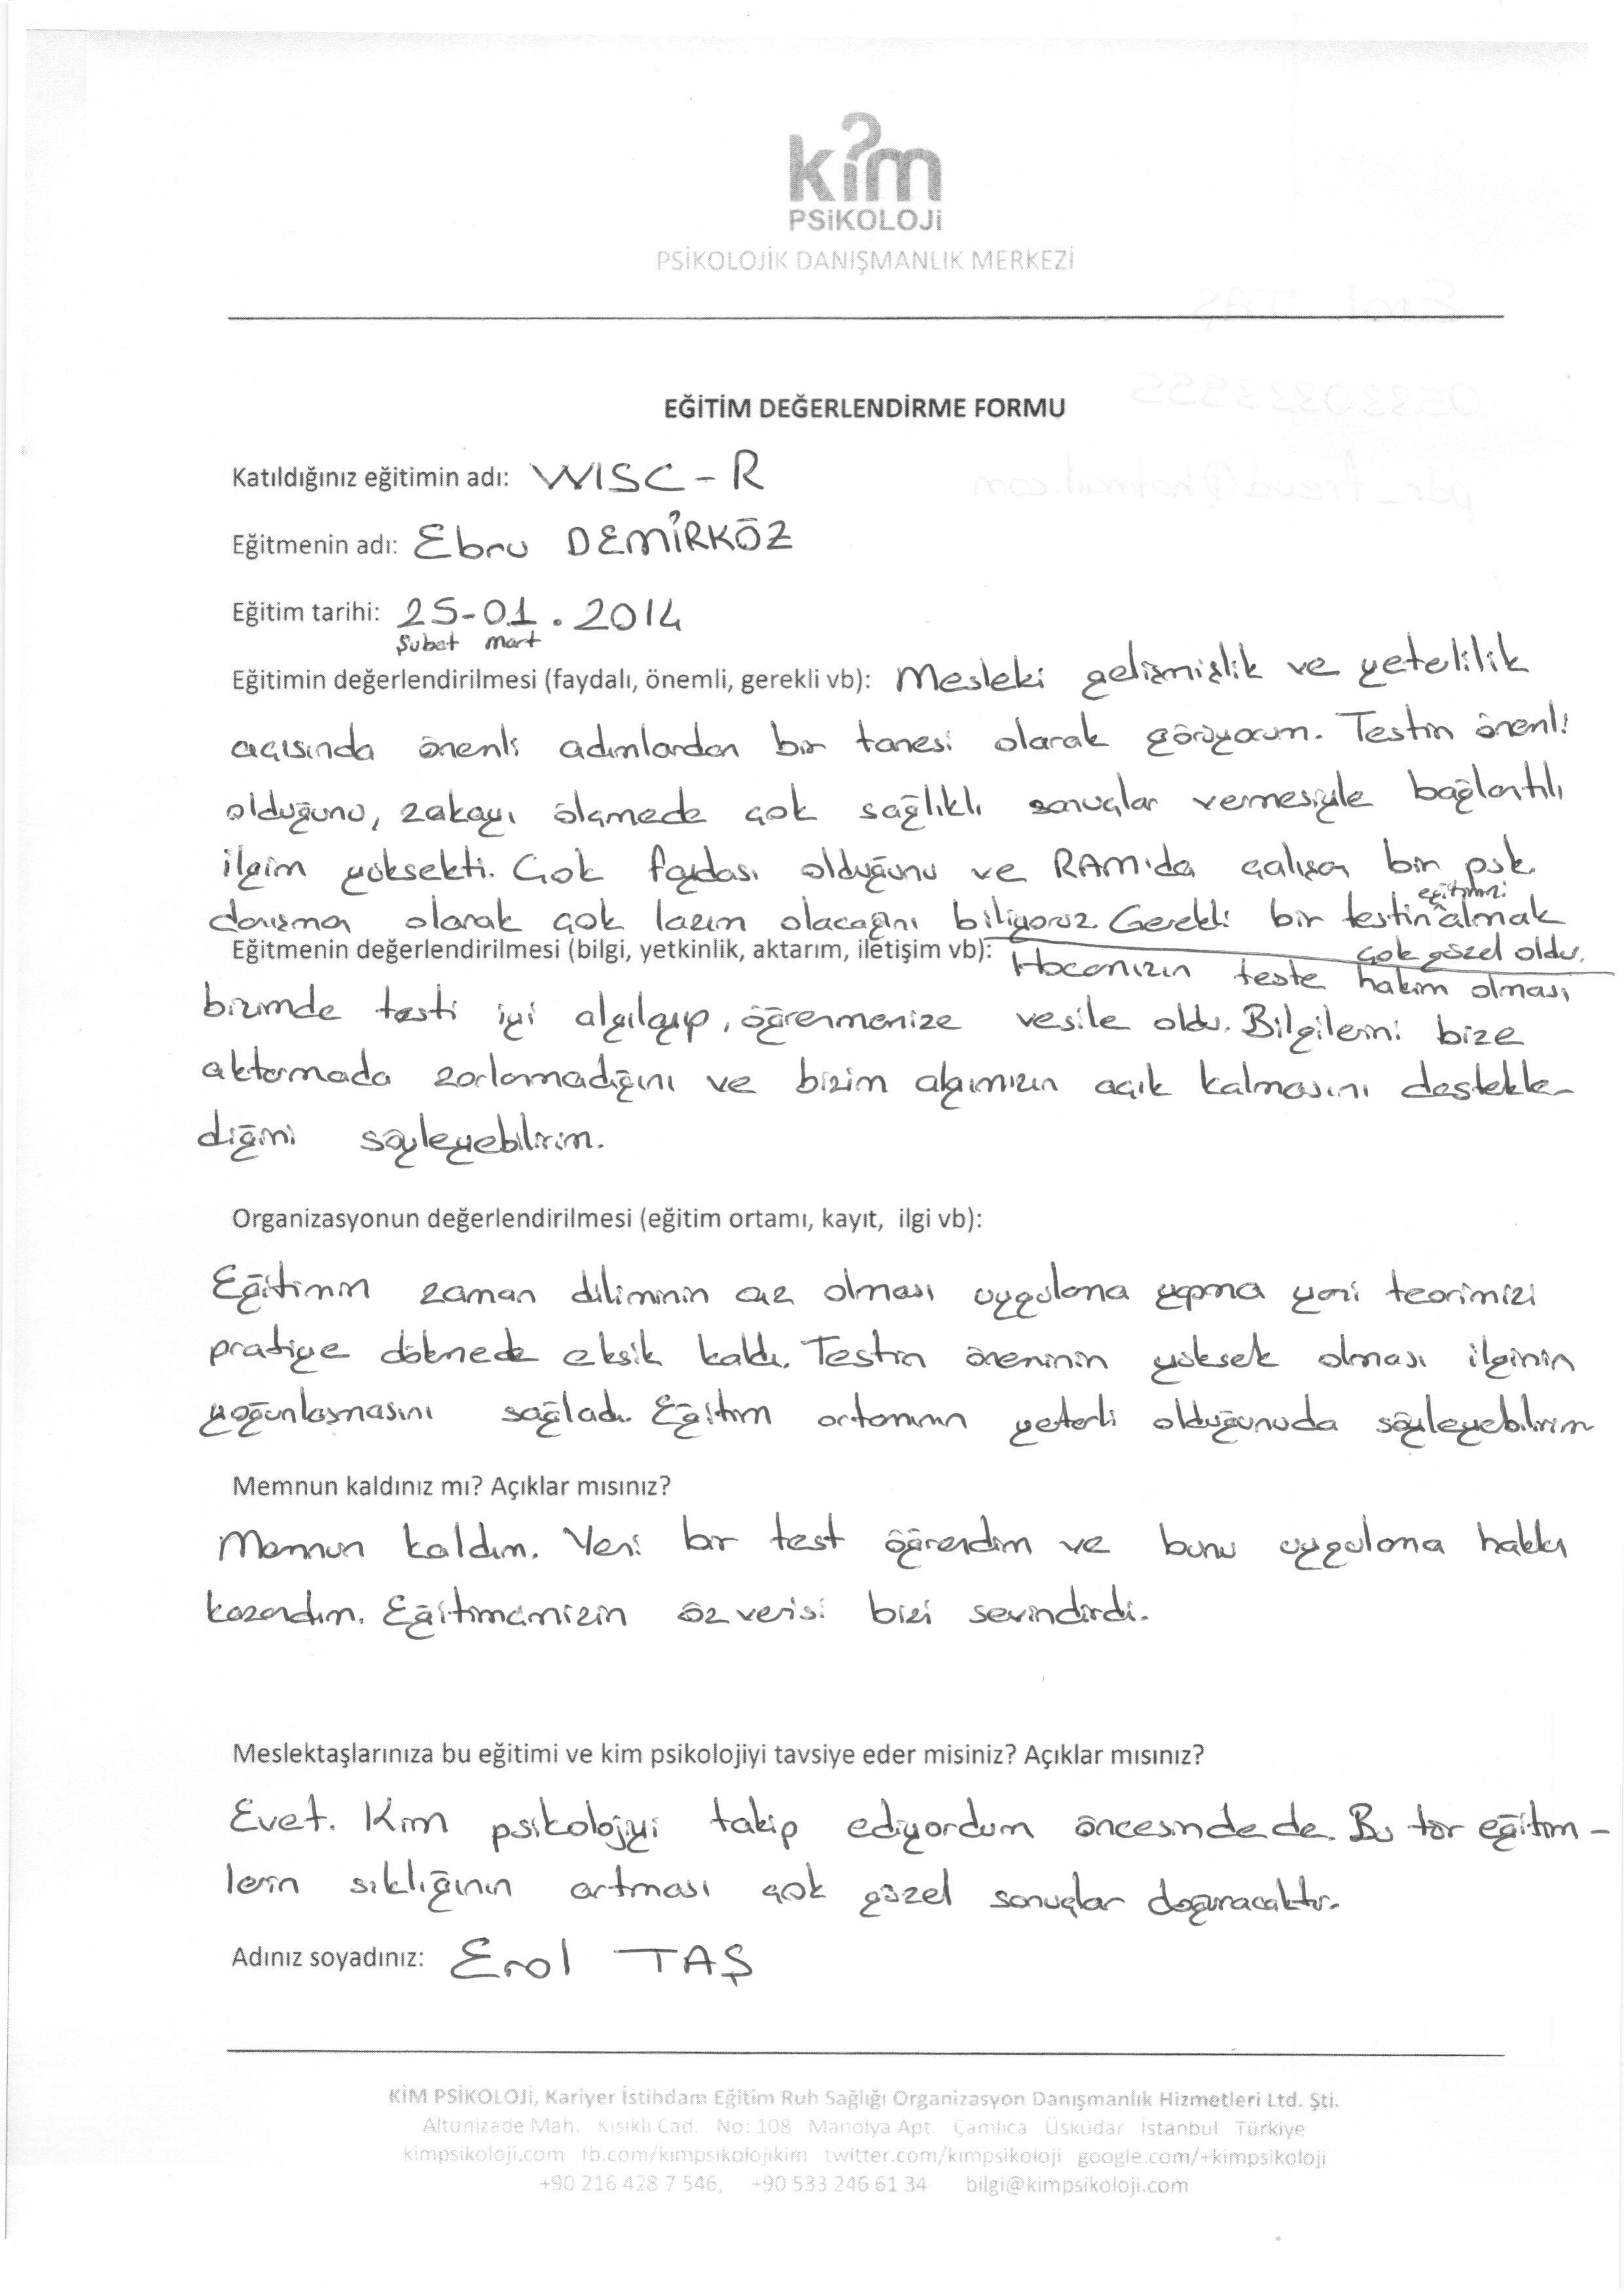 kim
PSiKOLOJi
PSİKOLOJİK DANIŞMANLIK MERKEZİ
EĞİTİM DEĞERLENDİRME FORMU
Katıldığınız eğitimin adı: WISC-R
Eğitmenin adı: Ebru DEMİRKÖZ
Eğitim tarihi: 25-01.2014
Şubat Mart
Eğitimin değerlendirilmesi (faydalı, önemli, gerekli vb): Mesleki gelişmişlik ve yetelilik
açısında önemli adımlardan bir tanesi olarak görüyorum. Testin önemli
olduğunu, zekayı ölçmede çok sağlıklı sonuçlar vermesiyle bağlantılı
ilgim yüksekti. Çok faydası olduğunu ve RAM'da çalışan bir psk.
danışman olarak çok lazım olacağını biliyoruz. Gerekli bir testin eğitimini almak
çok güzel oldu.
Eğitmenin değerlendirilmesi (bilgi, yetkinlik, aktarım, iletişim vb): Hocamızın teste hakim olması
bizimde testi iyi algılayıp, öğrenmemize vesile oldu. Bilgilerini bize
aktarmada zorlanmadığını ve bizim algımızın açık kalmasını destekle-
diğini söyleyebilirim.
Organizasyonun değerlendirilmesi (eğitim ortamı, kayıt, ilgi vb):
Eğitimin zaman diliminin az olması uygulama yapma yani teorimizi
pratiğe dökmede eksik kaldı. Testin öneminin yüksek olması ilginin
yoğunlaşmasını sağladı. Eğitim ortamının yeterli olduğunuda söyleyebilirim
Memnun kaldınız mı? Açıklar mısınız?
Memnun kaldım. Yeni bir test öğrendim ve bunu uygulama hakkı
kazandım. Eğitimcimizin öz verisi bizi sevindirdi.
Meslektaşlarınıza bu eğitimi ve kim psikolojiyi tavsiye eder misiniz? Açıklar mısınız?
Evet. Kim psikolojiyi takip ediyordum öncesindede. Bu tür eğitim-
lerin sıklığının artması çok güzel sonuçlar doğuracaktır.
Adınız soyadınız: Erol TAŞ
KİM PSİKOLOJİ, Kariyer İstihdam Eğitim Ruh Sağlığı Organizasyon Danışmanlık Hizmetleri Ltd. Şti.
Altunizade Mah. Kısıklı Cad. No: 108 Manolya Apt. Çamlıca Üsküdar İstanbul Türkiye
kimpsikoloji.com fb.com/kimpsikolojikim twitter.com/kimpsikoloji google.com/+kimpsikoloji
+90 216 428 7 546, +90 533 246 61 34 bilgi@kimpsikoloji.com